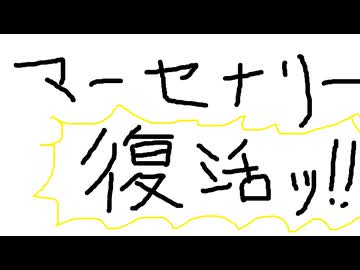 マーセナリー
復活ッ!!